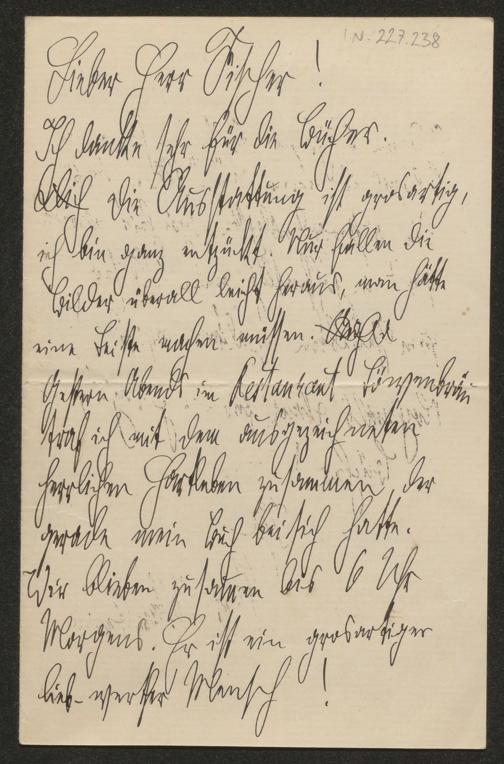 I.N. 227.238
Lieber Herr Fischer!
Ich danke sehr für die Bücher.
Die Ausstattung ist grosartig,
ich bin ganz entzückt. Nur fallen die
Bilder überall leicht heraus, man hätte
eine Leiste machen müssen.
Gestern Abends im Restaurant Löwenbräu
traf ich mit dem ausgezeichneten
herrlichen Hartleben zusammen, der
gerade mein Buch bei sich hatte.
Wir blieben zusamen bis 6 Uhr
Morgens. Er ist ein grosartiger
lieb-werther Mensch!